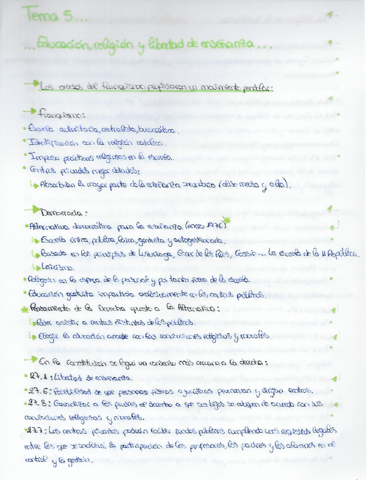 Tema 5...
...Educación, religión y libertad de enseñanza...
Los excesos del franquismo propiciaron un movimiento pendular:
Franquismo:
Escuela autoritaria, centralista, burocrática.
Identificación con la religión católica.
Impuso prácticas religiosas en la escuela.
Centros privados mejor dotados:
Absorbían la mayor parte de la enseñanza secundaria (clase media y alta).
Democracia:
Alternativa democrática para la enseñanza
Escuela única, pública, laica, gratuita y autogestionada.
Basada en los principios de la II República.
Laicismo.
Religión en la esfera de lo personal y por tanto fuera de la escuela.
Educación gratuita impartida exclusivamente en los centros públicos.
Planteamiento de la Derecha opuesto a la Alternativa:
Poder asistir a centros distintos de los públicos.
Elegir la educación acorde con las convicciones religiosas y morales.
En la Constitución se llegó un consenso más cercano a la derecha:
27.1: Libertad de enseñanza.
27.6: Posibilidad de que personas físicas o jurídicas promuevan y dirijan centros.
27.3: Garantiza a los padres el derecho a que sus hijos se eduquen de acuerdo con sus
convicciones religiosas y morales.
27.7: Los centros privados podrán recibir fondos públicos cumpliendo unos requisitos legales
entre los que se encuentra, la participación de los profesores, los padres y los alumnos en el
control y la gestión.